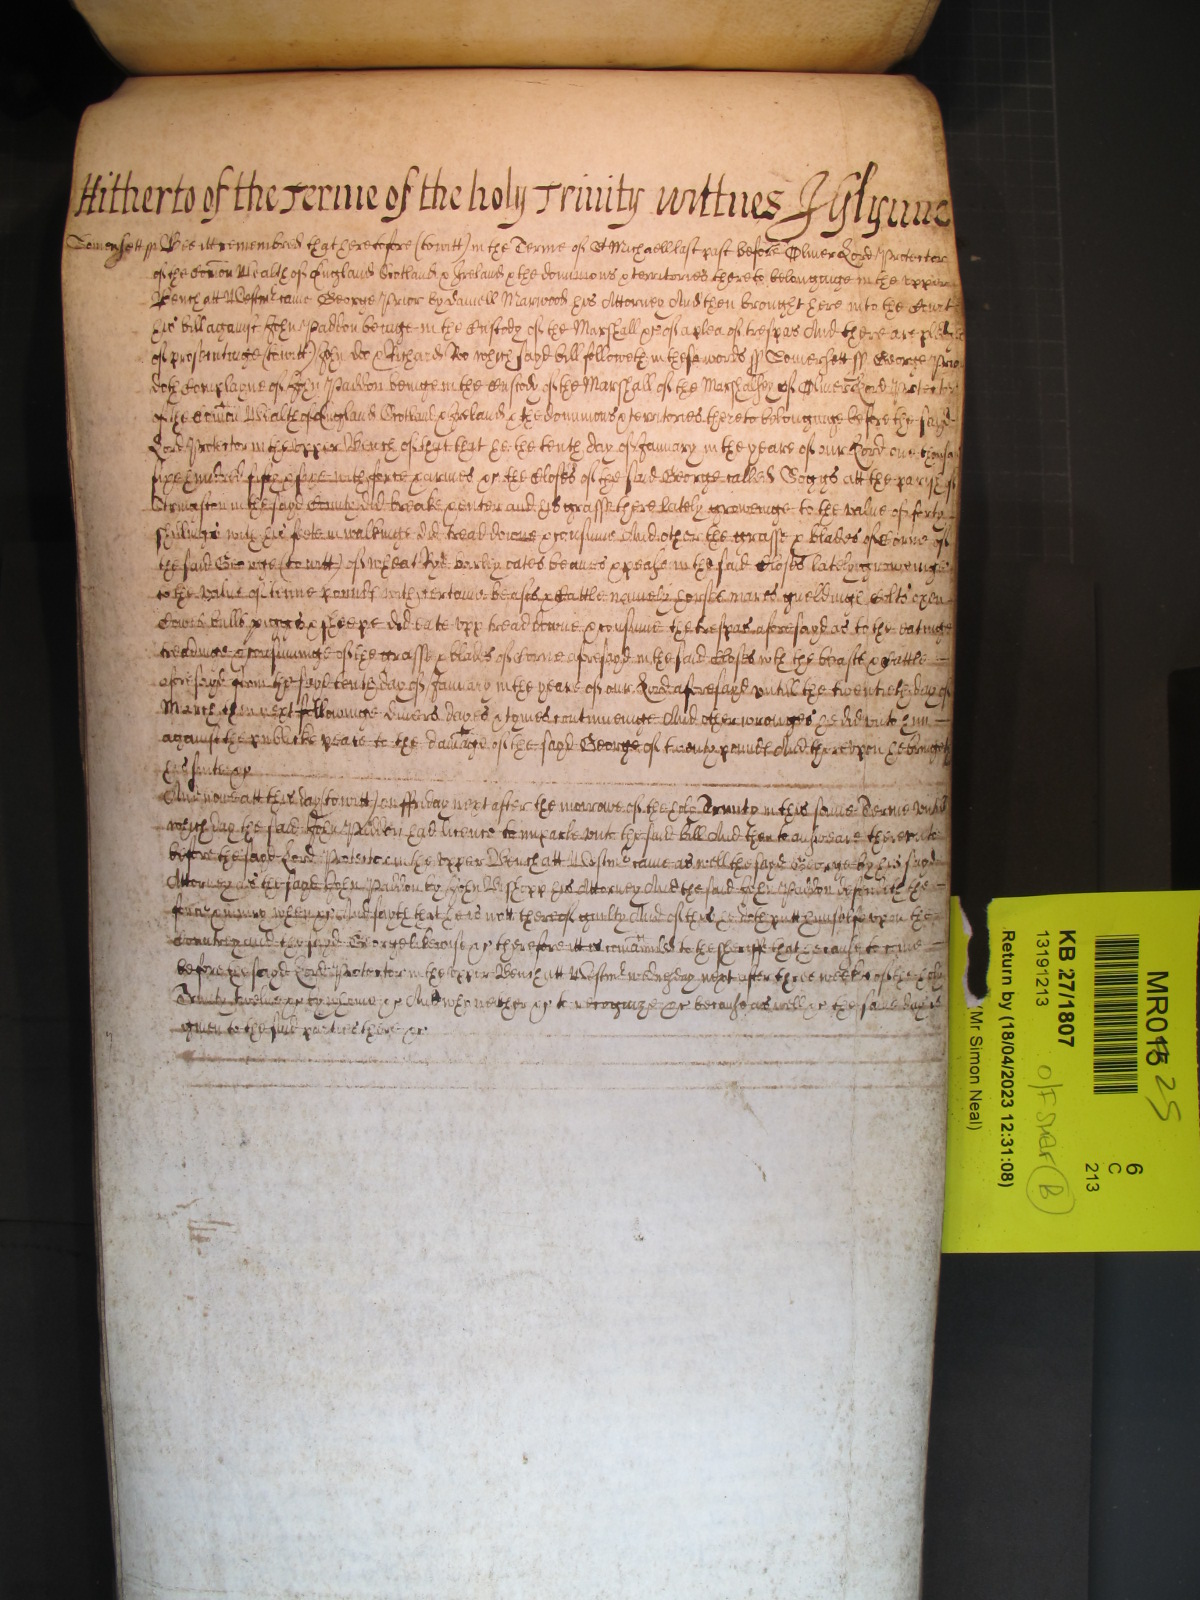 Hitherto of the Terme of the holy Trinity wittnes J Glynne
Somersett ss Bee itt remembred that heretofore (to witt) in the Terme of St Michaell last past before Oliver Lord Protector
of the Comon Wealth of England Scotland & Ireland & the dominions & territories thereto belonginge in the upper
Bench att Westmr came George Prior by Daniell Marwood his Attorney And then brought here into the Court
his bill against John Paddon beinge in the Custody of the Marshall &c of a plea of trespas And there are pledges
of prosecutinge (to witt) John Doe & Richard Roe which sayd bill followeth in these words ss Somersett ss George Prior
doth Complayne of John Paddon beinge in the Custody of the Marshall of the Marshalsey of Oliver Lord Protector
of the Comon Wealth of England Scotland & Ireland & the dominions & territories thereto belonginge before the sayd
Lord Protector in the upper Bench of that that he the tenth day of January in the yeare of our Lord one thousand
six hundred fifty & fore with force & armes &c the Closes of the said George called Goggs att the parish of
in the sayd County did breake & enter and his grasse there lately groweinge to the value of forty
shillings with his feete in walkinge did tread downe & consume And other the grasse & blades of Corne of
the said George (to witt) of wheat Rye barley oates beanes & pease in the said Closes lately groweinge
to the value of tenne pounds with certaine beasts & Cattle namely horses mares gueldings Colts oxen
Cowes bulls piggs & sheepe did eate upp tread downe & consume the trespas aforesayd as to the eatinge
treadinge & consuminge of the grasse & blades of Corne aforesayd in the said Closes with the beasts & Cattle
aforesayd from the sayd tenth day of January in the yeare of our Lord aforesayd untill the twentieth day of
March then next followinge divers dayes & tymes continueinge And other wronges he did unto him
against the publicke peace to the damage of the sayd George of twenty pounds And thereupon he bringeth
his suite &c
And nowe att this day (to witt) on ffriday next after the morrowe of the holy Trinity in this same Terme untill
which day the said John Paddon had licence to imparle unto the said bill And then to answeare thereunto
before the sayd Lord Protector in the upper Bench att Westmr came as well the sayd George by his sayd
Attorney as the sayd John Paddon by John Bishopp his Attorney And the said John Paddon defendeth the
force & iniury when &c And sayth that he is nott thereof guilty And of this he doth putt himselfe upon the
Countrey and the sayd George likewise &c therefore itt is comaunded to the sheriffe that he cause to come
before the sayd Lord Protector in the upper Bench att Westmr wednesday next after three weekes of the holy
Trinity twelve &c by whome &c And who neither &c to recognize &c because as well &c the same day is
given to the said parties there &c
MR018 25
6
C
213
KB 27/1807
13191213
Return by (18/04/2023 12:31:08)
(Mr Simon Neal)